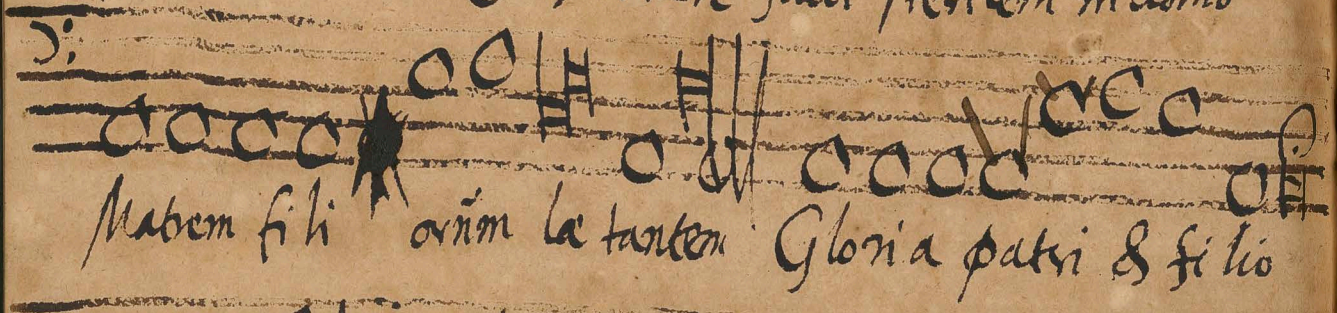 Matrem fi li orum̄ læ tantem Gloria patri & fi lio